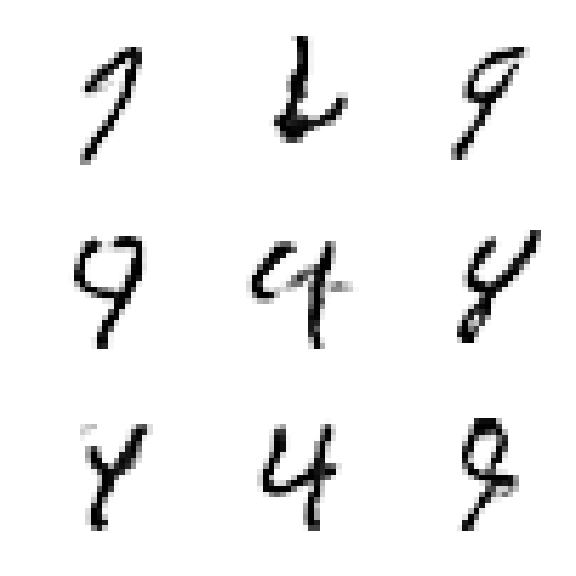 7 2 9
9 4 8
4 4 9